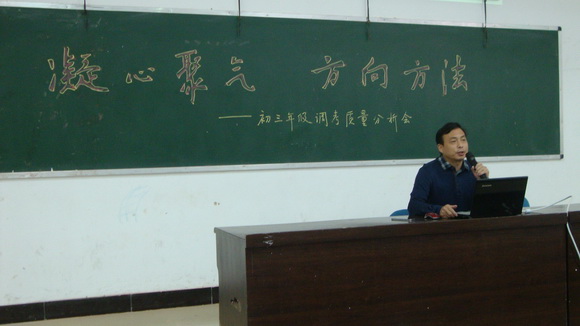 凝心聚气 方向方法
——初三年级调考质量分析会